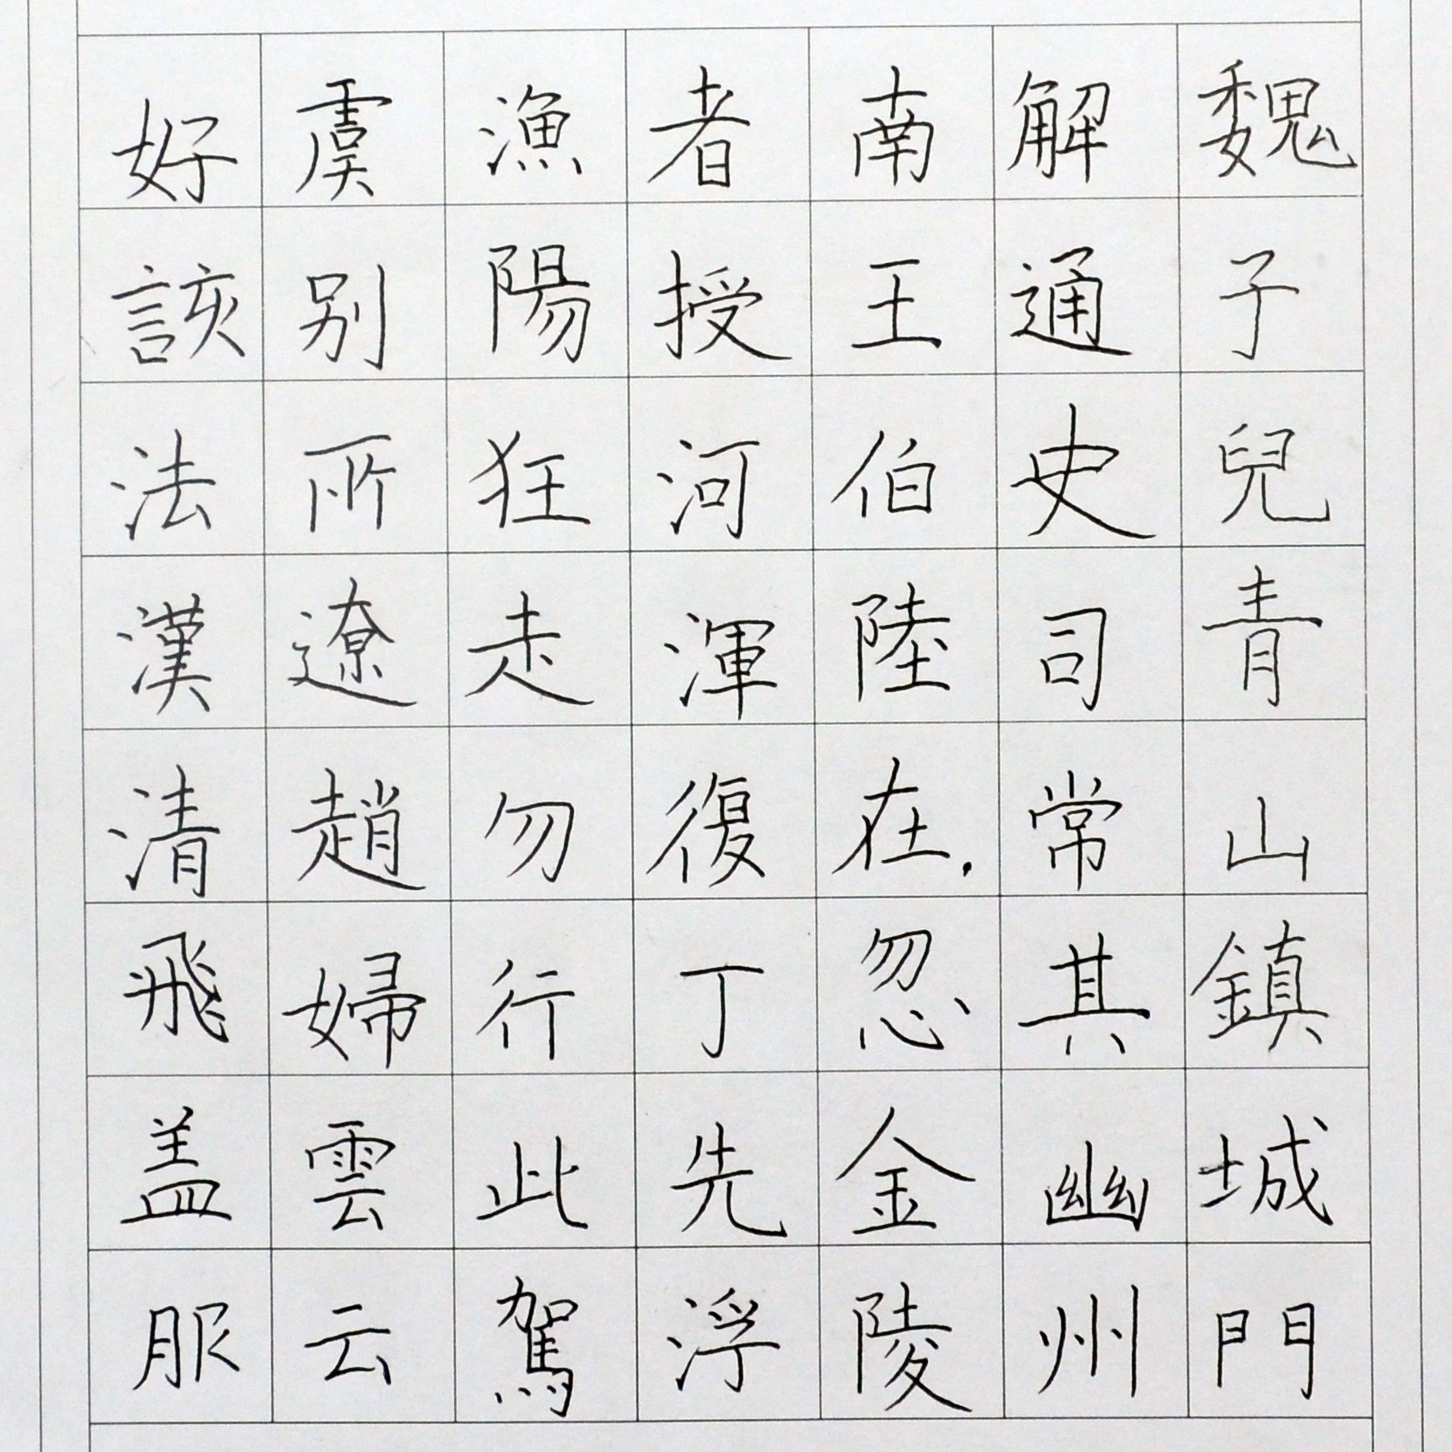 魏子兒青山鎮城門
解通史司常其幽州
南王伯陸在忽金陵
者授河渾復丁先浮
漁陽狂走勿行此駕
虞别所遼趙婦雲云
好該法漢清飛盖服